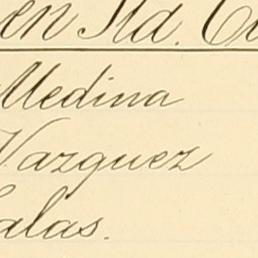 en Std. Co
Medina
Vazquez
Salas.